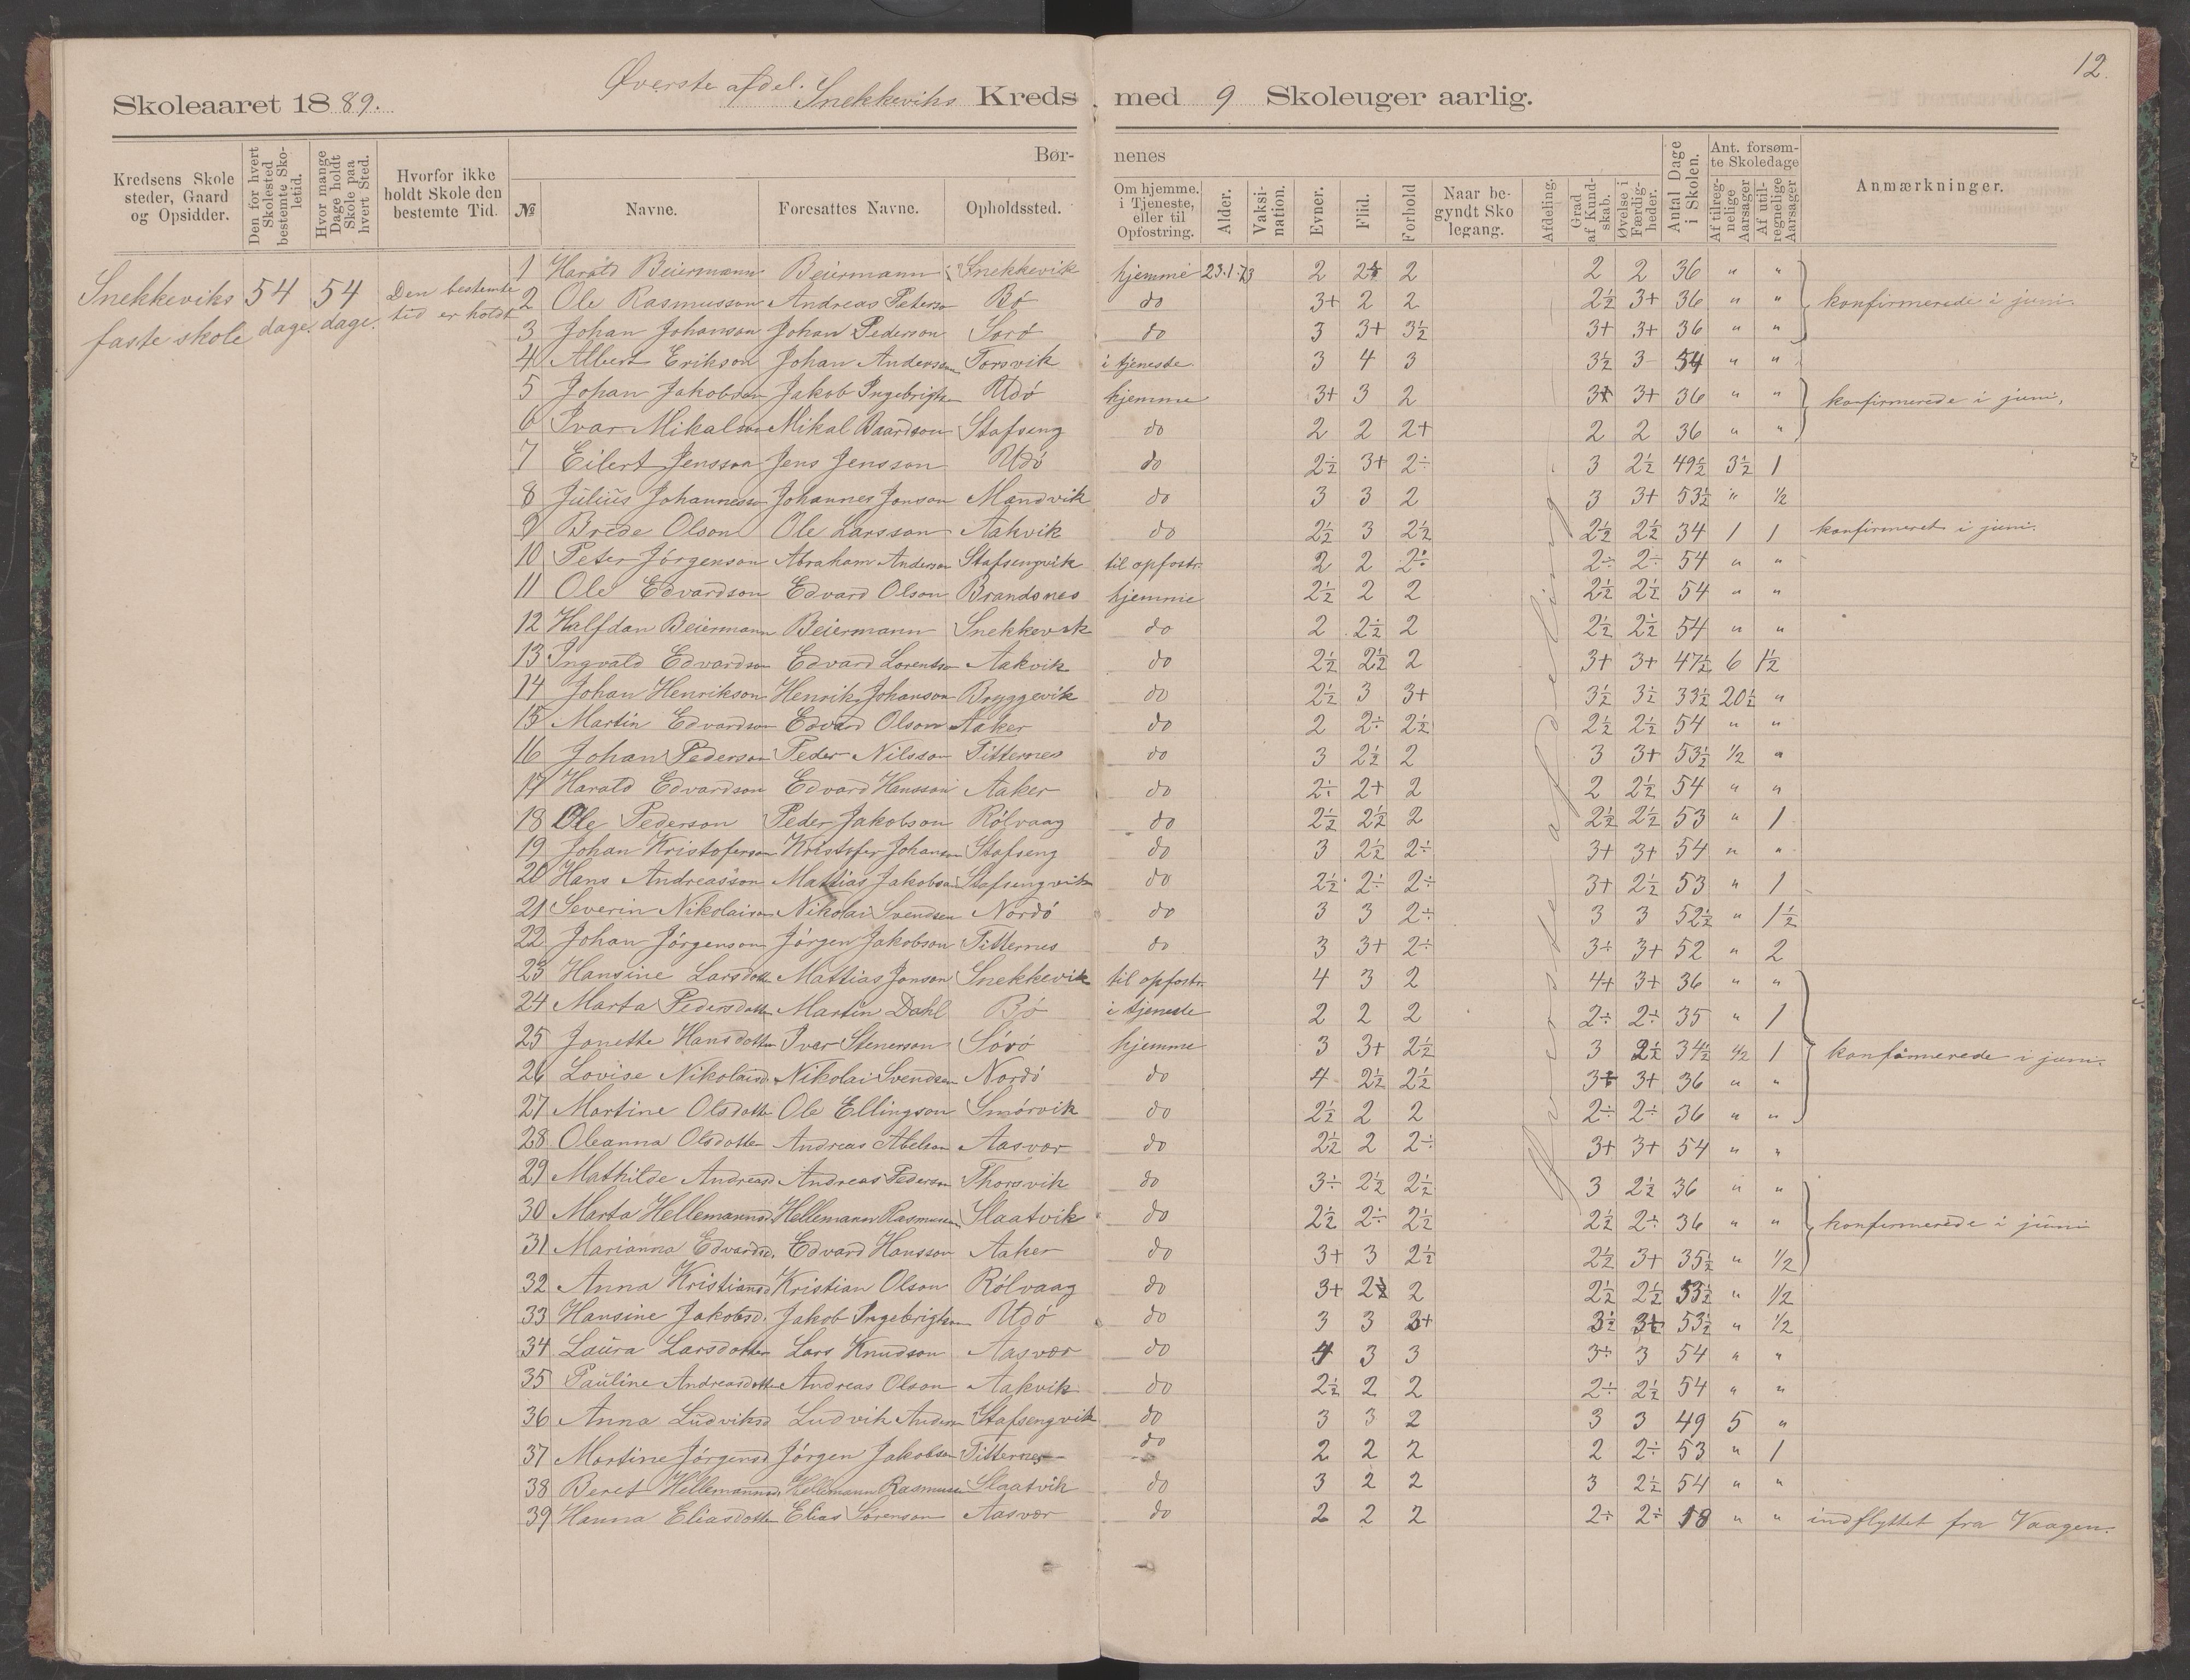 12.
Skoleaaret 1889. Øverste afdel. Snekkeviks Kreds med 9 Skoleuger aarlig.
Kredsens Skolesteder, Gaard og Opsidder.
Den for hvert Skolested bestemte Skoletid.
Hvor mange Dage holdt Skole paa hvert Sted.
Hvorfor ikke holdt Skole den bestemte Tid.
Børnenes
№ Navne. Foresattes Navne. Opholdssted. Om hjemme, i Tjeneste, eller til Opfostring. Alder. Vaksination. Evner. Flid. Forhold Naar begyndt Skolegang. Afdeling. Grad af Kundskab. Øvelse i Færdigheder. Antal Dage i Skolen. Ant. forsømte Skoledage Af tilregnelige Aarsager Af utilregnelige Aarsager Anmærkninger.
Snekkeviks 54 54 Den bestemte
faste skole dage. dage. tid er holdt
Øverste afdeling
1 Harald Beiermann Beiermann Snekkevik hjemme 23.1.73 2 2½ 2 2 2 36 " "
2 Ole Rasmusson Andreas Peterso Bø do 3+ 2 2 2½ 3+ 36 " " konfirmerede i juni.
3 Johan Johanson Johan Pederson Sørø do 3 3+ 3½ 3+ 3+ 36 " "
4 Albert Erikson Johan Anderson Torsvik i tjeneste 3 4 3 3½ 3 54 " "
5 Johan Jakobsen Jakob Ingebrigtsen Udø hjemme 3+ 3 2 3+ 3+ 36 " " konfirmerede i juni,
6 Ivar Mikalson Mikal Baardson Stafseng do 2 2 2+ 2 2 36 " "
7 Eilert Jensson Jens Jensson Udø do 2½ 3+ 2÷ 3 2½ 49½ 3½ 1
8 Julius Johannesson Johannes Jonson Mandvik do 3 3 2 3 3+ 53½ " ½
9 Brede Olson Ole Larsson Aakvik do 2½ 3 2½ 2½ 2½ 34 1 1 konfirmeret i juni.
10 Peter Jørgenson Abraham Anderson Stafsengvik til opfostr. 2 2 2÷ 2÷ 2÷ 54 " "
11 Ole Edvardson Edvard Olson Brandsnes hjemme 2½ 2 2 2½ 2½ 54 " "
12 Halfdan Beiermann Beiermann Snekkevik do 2 2½ 2 2½ 2½ 54 " "
13 Ingvald Edvardson Edvard Lorentson Aakvik do 2½ 2½ 2 3+ 3+ 47½ 6 1½
14 Johan Henrikson Henrik Johanson Bryggevik do 2½ 3 3+ 3½ 3½ 33½ 20½ "
15 Martin Edvardson Edvard Olson Aaker do 2 2÷ 2½ 2½ 2½ 54 " "
16 Johan Pederson Peder Nilsson Titternes do 3 2½ 2 3 3+ 53½ ½ "
17 Harald Edvardson Edvard Hansson Aaker do 2÷ 2+ 2 2 2½ 54 " "
18 Ole Pederson Peder Jakobson Rølvaag do 2½ 2½ 2 2½ 2½ 53 " 1
19 Johan Kristoferson Kristofer Johanson Stafseng do 3 2½ 2÷ 3+ 3+ 54 " "
20 Hans Andreasson Mattias Jakobson Stafsengvik do 2½ 2÷ 2÷ 3+ 2½ 53 " 1
21 Severin Nikolaison Nikolai Svendsen Nordø do 3 3 2÷ 3 3 52½ " 1½
22 Johan Jørgenson Jørgen Jakobson Titternes do 3 3+ 2÷ 3÷ 3+ 52 " 2
23 Hansine Larsdotter Mattias Jonson Snekkevik til opfostr. 4 3 2 4+ 3+ 36 " "
24 Marta Pedersdotter Martin Dahl Bø i tjeneste 2 2 2 2÷ 2÷ 35 " 1
25 Jonette Hansdotter Ivar Stenerson Sørø hjemme 3 3+ 2½ 3 2½ 34½ ½ 1 konfirmerede i juni.
26 Lovise Nikolaisd. Nikolai Svendsen Nordø do 4 2½ 2½ 3+ 3+ 36 " "
27 Martine Olsdotter Ole Ellingson Smørvik do 2½ 2 2 2÷ 2÷ 36 " "
28 Oleanna Olsdotter Andreas Abelson Aasvær do 2½ 2 2÷ 3+ 3+ 54 " "
29 Mathilde Andreasd Andreas Pederson Thorsvik do 3÷ 2½ 2½ 3 2½ 36 " "
30 Marta Hellemannsd Hellemann Rasmussen Slaatvik do 2½ 2÷ 2½ 2½ 2÷ 36 " " konfirmerede i juni
31 Marianna Edvardsd. Edvard Hansson Aaker do 3+ 3 2½ 2½ 3+ 35½ " ½
32 Anna Kristiansd Kristian Olson Rølvaag do 3+ 2½ 2 2½ 2½ 53½ " ½
33 Hansine Jakobsd. Jakob Ingebrigtsen Udø do 3 3 3+ 3½ 3+ 53½ " ½
34 Laura Larsdotter Lars Knudson Aasvær do 4 3 3 3÷ 3 54 " "
35 Pauline Andreasdotter Andreas Olson Aakvik do 2½ 2 2 2÷ 2½ 54 " "
36 Anna Ludviksd Ludvik Anderson Stafsengvik do 3 3 2 3 3 49 5 "
37 Martine Jørgensd Jørgen Jakobson Titternes do 2 2 2 2 2÷ 53 " 1
38 Beret Hellemannsd. Hellemann Rasmussen Slaatvik do 3 2 2 3 2½ 54 " "
39 Hanna Eliasdotter Elias Sørenson Aasvær do 2 2 2 2÷ 2÷ 18 " " indflyttet fra Vaagen.